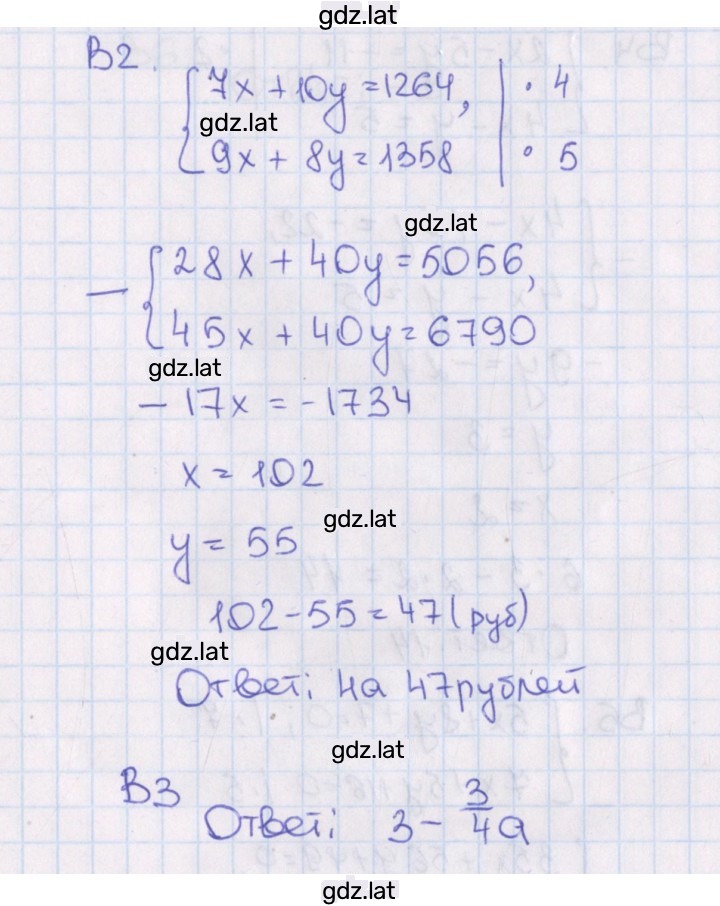 gdz.lat
B2.
7x + 10y = 1264, | · 4
gdz.lat
9x + 8y = 1358 | · 5
gdz.lat
− 28x + 40y = 5056,
45x + 40y = 6790
gdz.lat
− 17x = -1734
x = 102
gdz.lat
y = 55
102 - 55 = 47 (руб)
gdz.lat
Ответ: на 47 рублей
gdz.lat
B3
Ответ: 3 - 3/4 a
gdz.lat